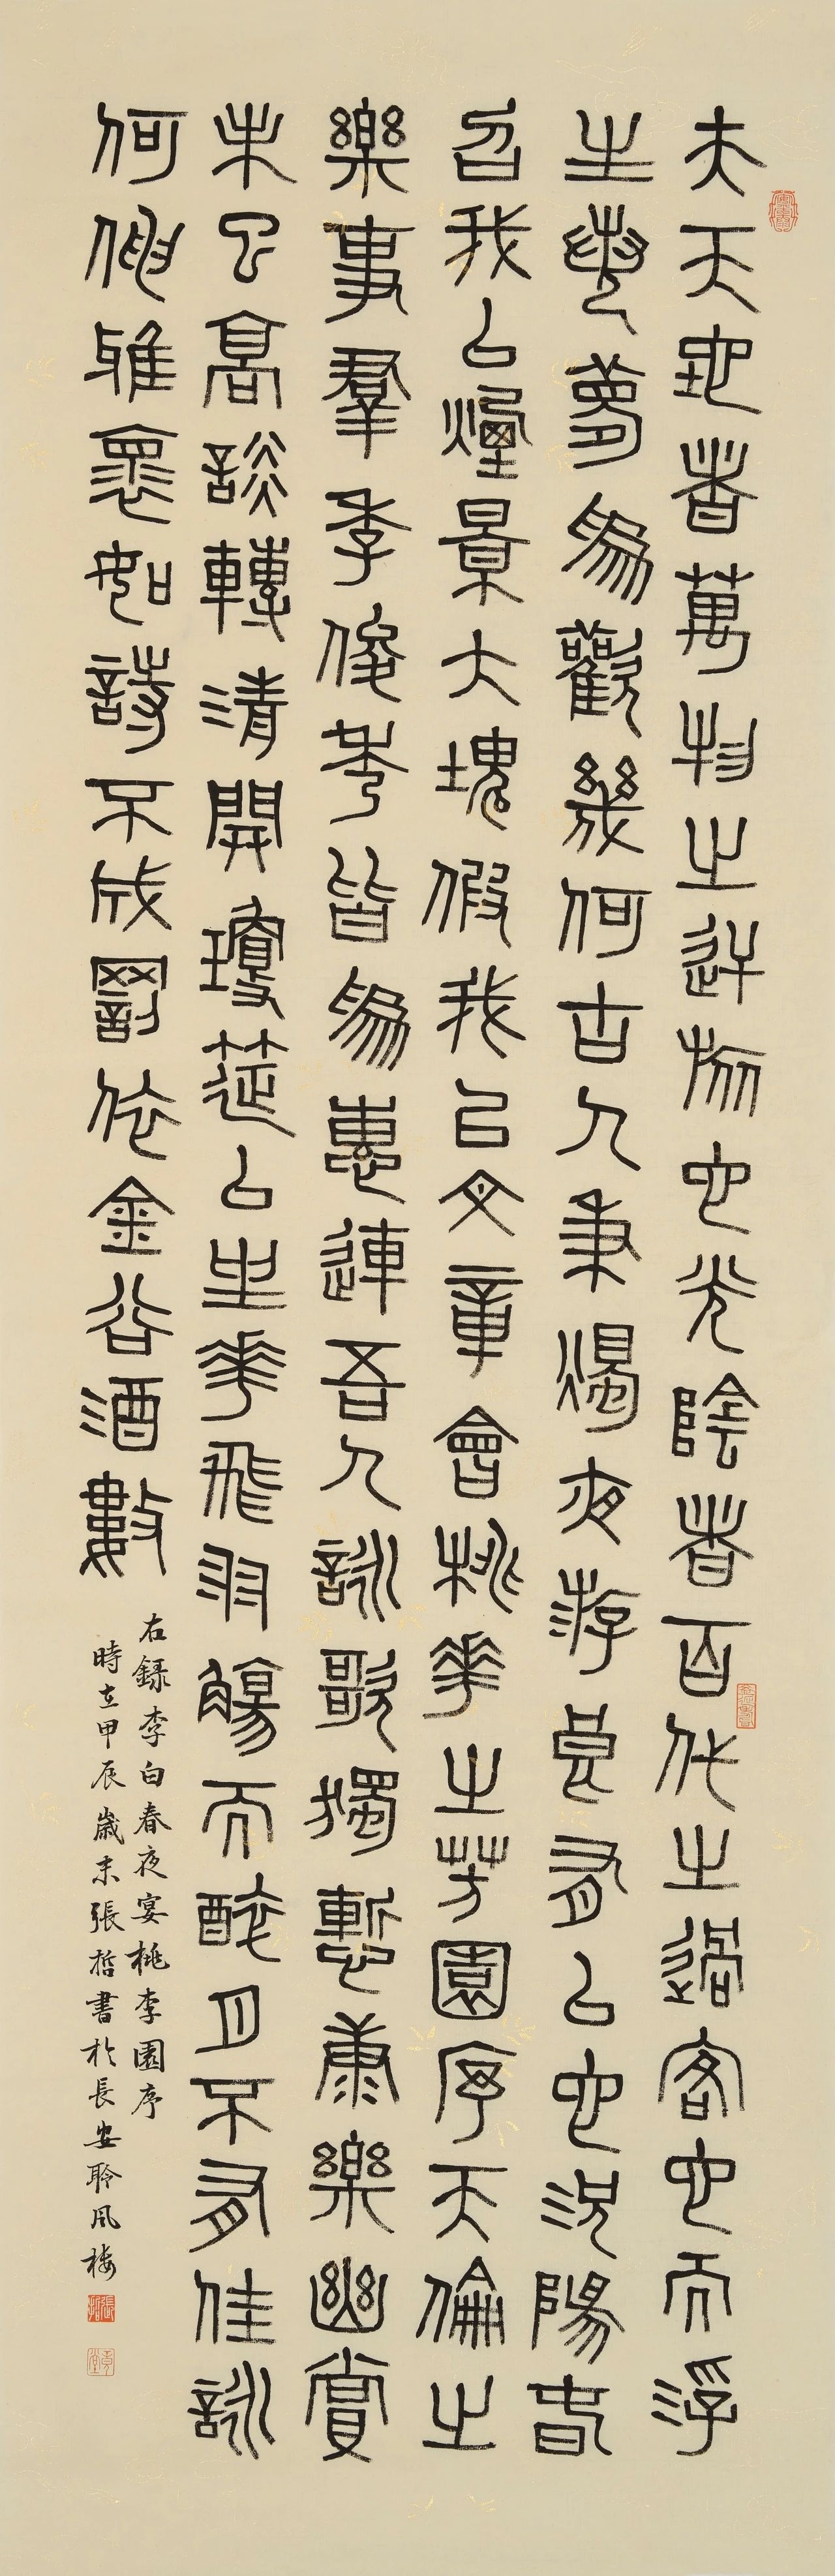 夫天地者萬物之逆旅也光陰者百代之過客也而浮
生若夢爲歡幾何古人秉燭夜游良有以也況陽春
召我以煙景大塊假我以文章會桃華之芳園序天倫之
樂事羣季俊秀皆爲惠連吾人詠歌獨慙康樂幽賞
未已高談轉清開瓊筵以坐華飛羽觴而醉月不有佳詠
何伸雅懷如詩不成罰依金谷酒數
右録李白春夜宴桃李園序
時在甲辰歲末張哲書於長安聆風樓